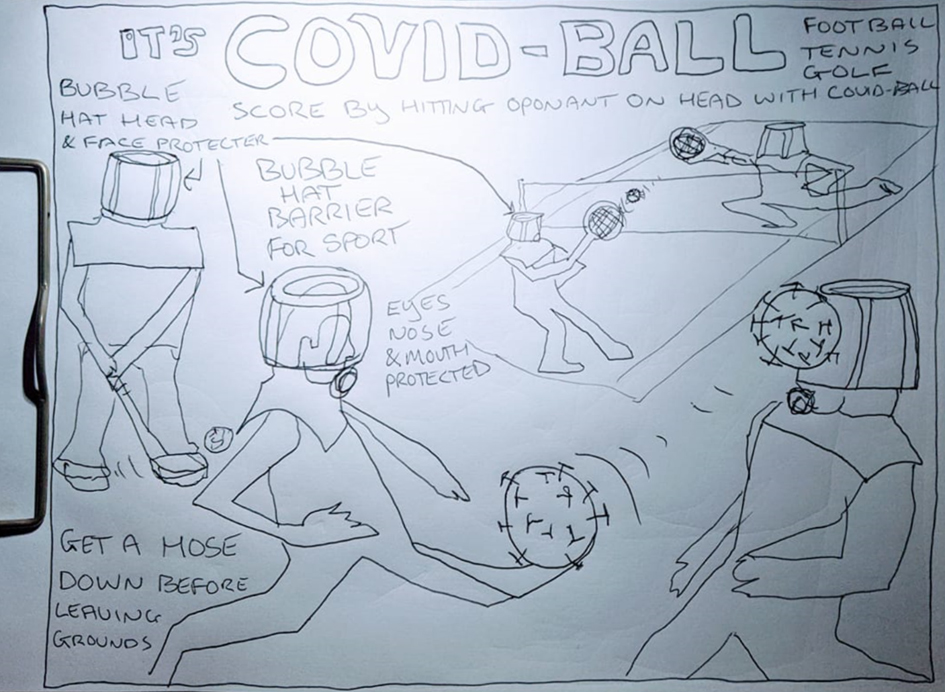 IT'S COVID-BALL
FOOTBALL
TENNIS
GOLF
SCORE BY HITTING OPONANT ON HEAD WITH COVID-BALL
BUBBLE
HAT HEAD
& FACE PROTECTER
BUBBLE
HAT
BARRIER
FOR SPORT
EYES
NOSE
& MOUTH
PROTECTED
GET A HOSE
DOWN BEFORE
LEAVING
GROUNDS